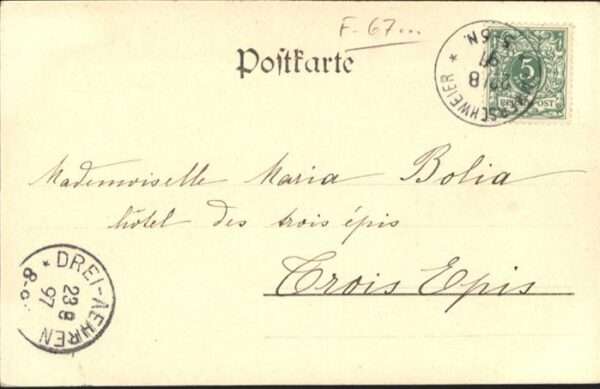 F-67...
Postkarte
5
* 
23/8
97
5-6N.
Mademoiselle Maria Bolia
hôtel des trois épis
Trois Epis
* DREI-AEHREN
23 8
97